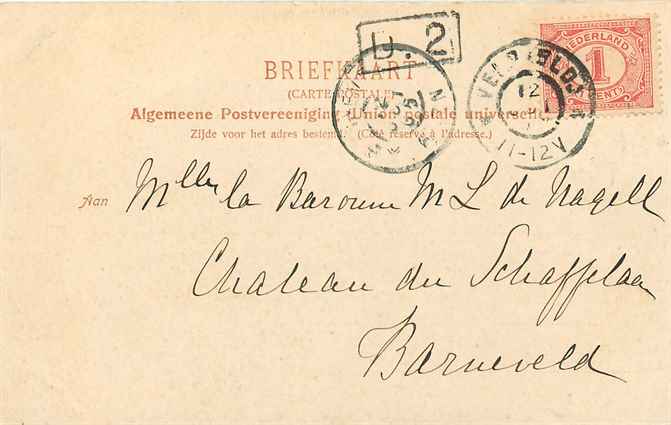 U. 2
NEDERLAND
1
CENT
BRIEFKAART
(CARTE POSTALE)
12
11-12V
Algemeene Postvereeniging (Union postale universelle)
Zijde voor het adres bestemd. (Côté réservé à l'adresse.)
Aan Mlle la Baronne M L de Nagell
Chateau du Schaffelaar
Barneveld